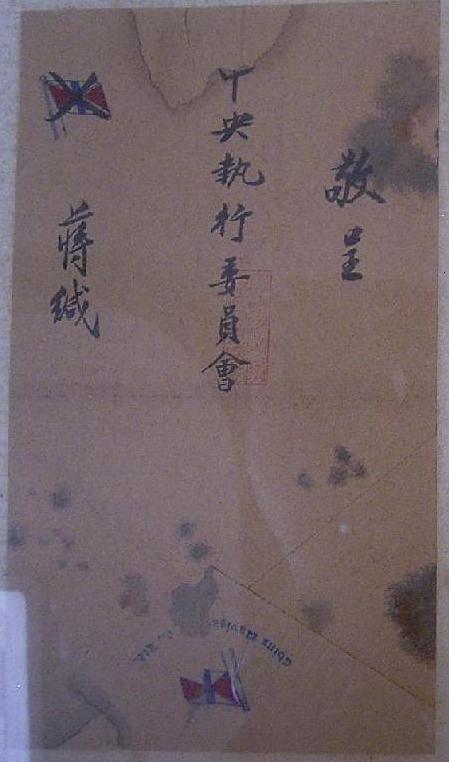 敬呈
中央執行委員會
蔣緘